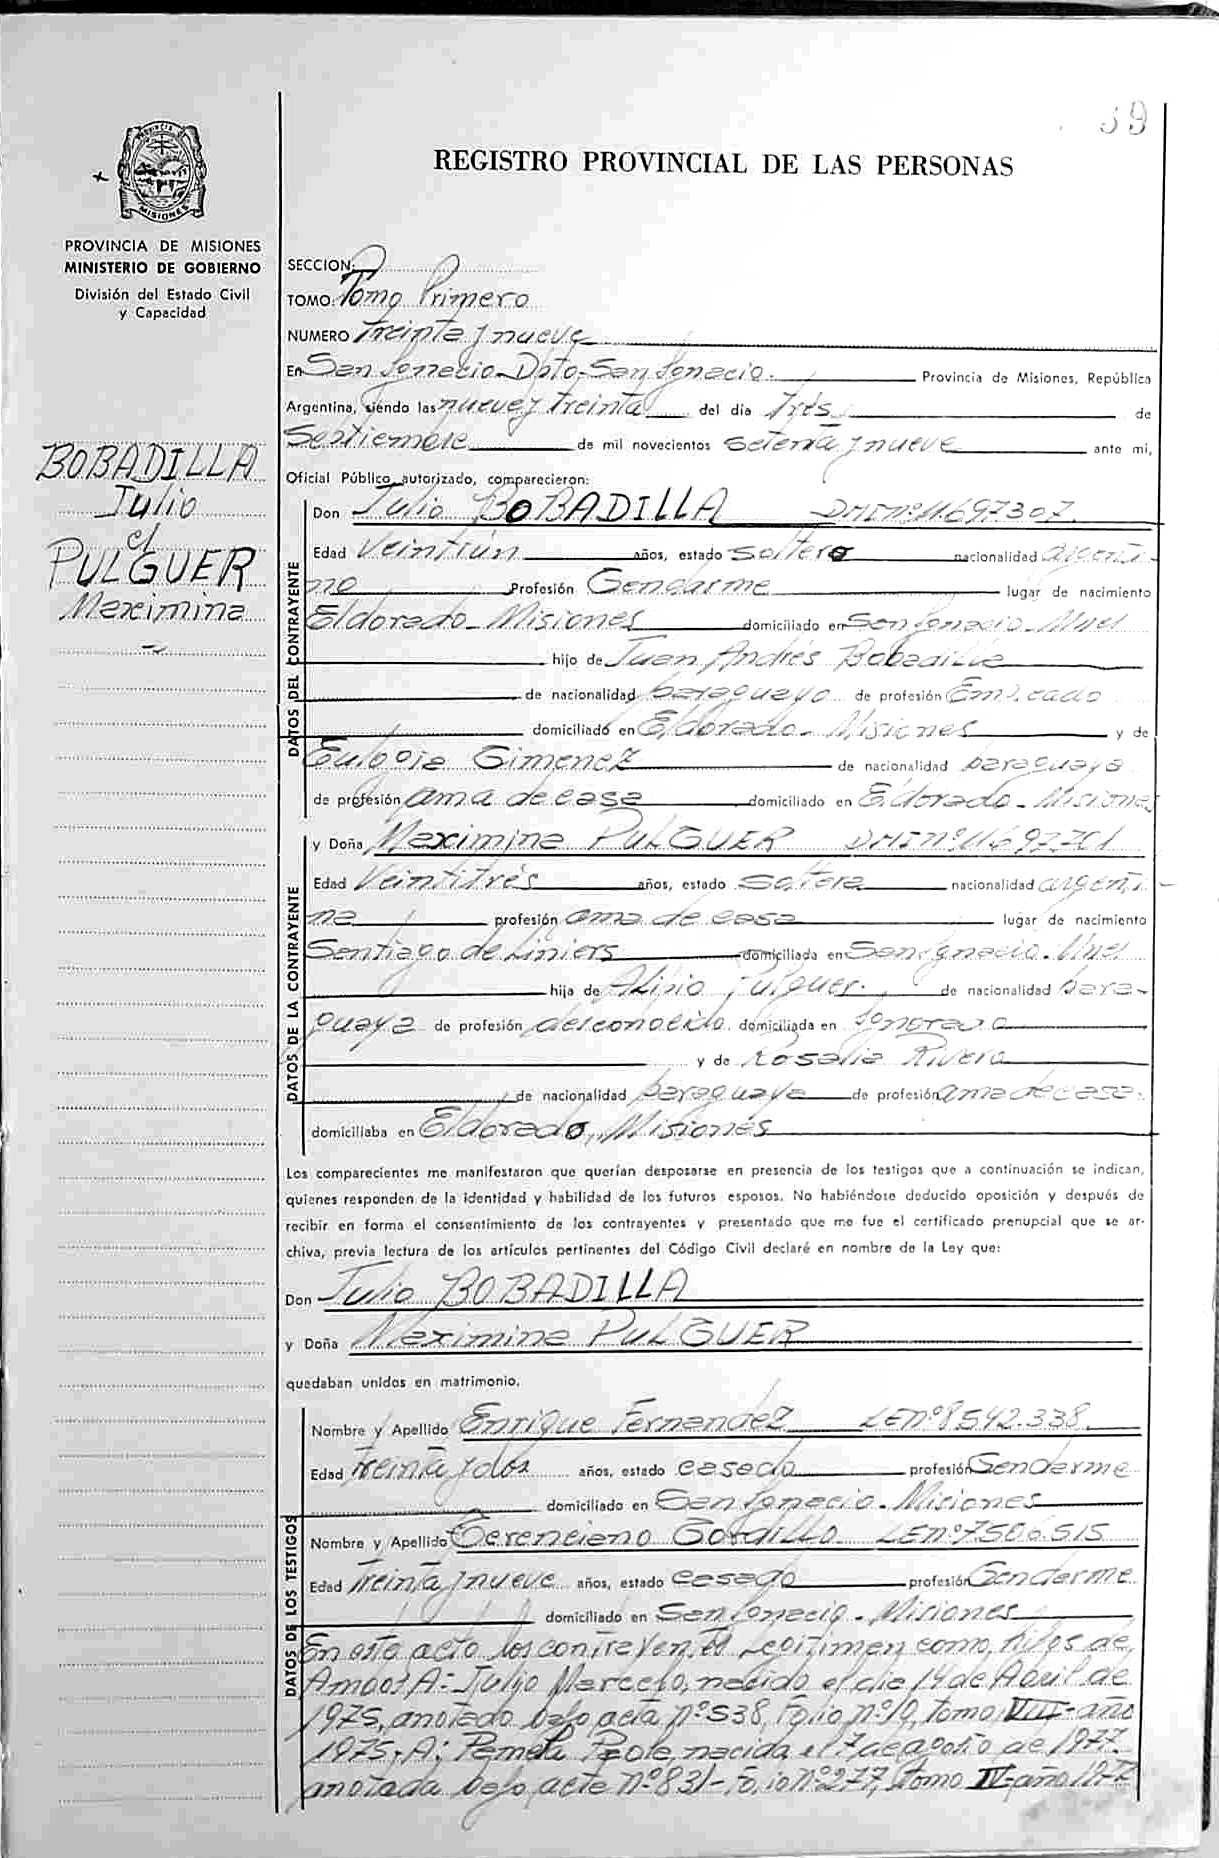 39
REGISTRO PROVINCIAL DE LAS PERSONAS
PROVINCIA DE
MISIONES
PROVINCIA DE MISIONES
MINISTERIO DE GOBIERNO
División del Estado Civil
y Capacidad
BOBADILLA
Julio
c/
PULGUER
Maximina
SECCION:
TOMO: Tomo Primero
NUMERO Treinta y nueve
En San Ignacio - Dpto. San Ignacio. Provincia de Misiones, República
Argentina, siendo las nueve y treinta del día tres de
Septiembre de mil novecientos setenta y nueve ante mí,
Oficial Público autorizado, comparecieron:
DATOS DEL CONTRAYENTE
Don Julio BOBADILLA DNI nº 11.697307
Edad Veintiún años, estado soltero nacionalidad argenti-
no Profesión Gendarme lugar de nacimiento
Eldorado - Misiones domiciliado en San Ignacio - Mnes
hijo de Juan Andrés Bobadilla
de nacionalidad paraguayo de profesión Empleado
domiciliado en Eldorado - Misiones y de
Eulogia Gimenez de nacionalidad paraguaya
de profesión ama de casa domiciliado en Eldorado - Misiones
DATOS DE LA CONTRAYENTE
y Doña Maximina PULGUER DNI nº 11697701
Edad Veintitrés años, estado soltera nacionalidad argenti-
na profesión ama de casa lugar de nacimiento
Santiago de Liniers domiciliada en San Ignacio. Mnes
hija de Alipio Pulguer. de nacionalidad para-
guaya de profesión desconocido domiciliada en Ignorado
y de Rosalia Rivero
de nacionalidad paraguaya de profesión ama de casa.
domiciliaba en Eldorado, Misiones
Los comparecientes me manifestaron que querían desposarse en presencia de los testigos que a continuación se indican,
quienes responden de la identidad y habilidad de los futuros esposos. No habiéndose deducido oposición y después de
recibir en forma el consentimiento de los contrayentes y presentado que me fue el certificado prenupcial que se ar-
chiva, previa lectura de los artículos pertinentes del Código Civil declaré en nombre de la Ley que:
Don Julio BOBADILLA
y Doña Maximina PULGUER
quedaban unidos en matrimonio.
DATOS DE LOS TESTIGOS
Nombre y Apellido Enrique Fernandez LE nº 8542.338
Edad treinta y dos años, estado casado profesión Gendarme
domiciliado en San Ignacio - Misiones
Nombre y Apellido Gerenciano Gordillo LE nº 7506.515
Edad treinta y nueve años, estado casado profesión Gendarme
domiciliado en San Ignacio - Misiones
En este acto los contrayentes Legitiman como hijos de
Ambos A: Julio Marcelo, nacido el dia 14 de Abril de
1975, anotado bajo acta nº 538, Folio nº 10, tomo VIII - año
1975 - A: Pamela Paola, nacida el 7 de agosto de 1977
anotada bajo acta nº 831 - Folio nº 277, tomo IV - año 1977